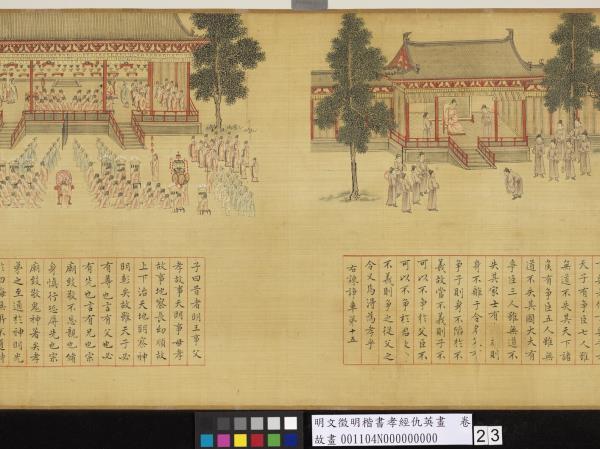 天子有爭臣七人雖
無道不失其天下諸
侯有爭臣五人雖無
道不失其國大夫有
爭臣三人雖無道不
失其家士有 則
身不離于令名
爭子則身不陷於不
義故當不義則子不
可以不爭於父臣不
可以不爭於君
不義則爭之從父之
令又焉得為孝乎
右諫諍章第十五
子曰昔者明王事父
孝故事天明事母孝
故事地察長幼順故
上下治天地明察神
明彰矣故雖天子必
有尊也言有父也必
有先也言有兄也宗
廟致敬不忘親也脩
身慎行恐辱先也宗
廟致敬鬼神著矣孝
弟之至通於神明光
於四海無所不通詩
明文徵明楷書孝經仇英畫 卷
故畫 001104N000000000
23